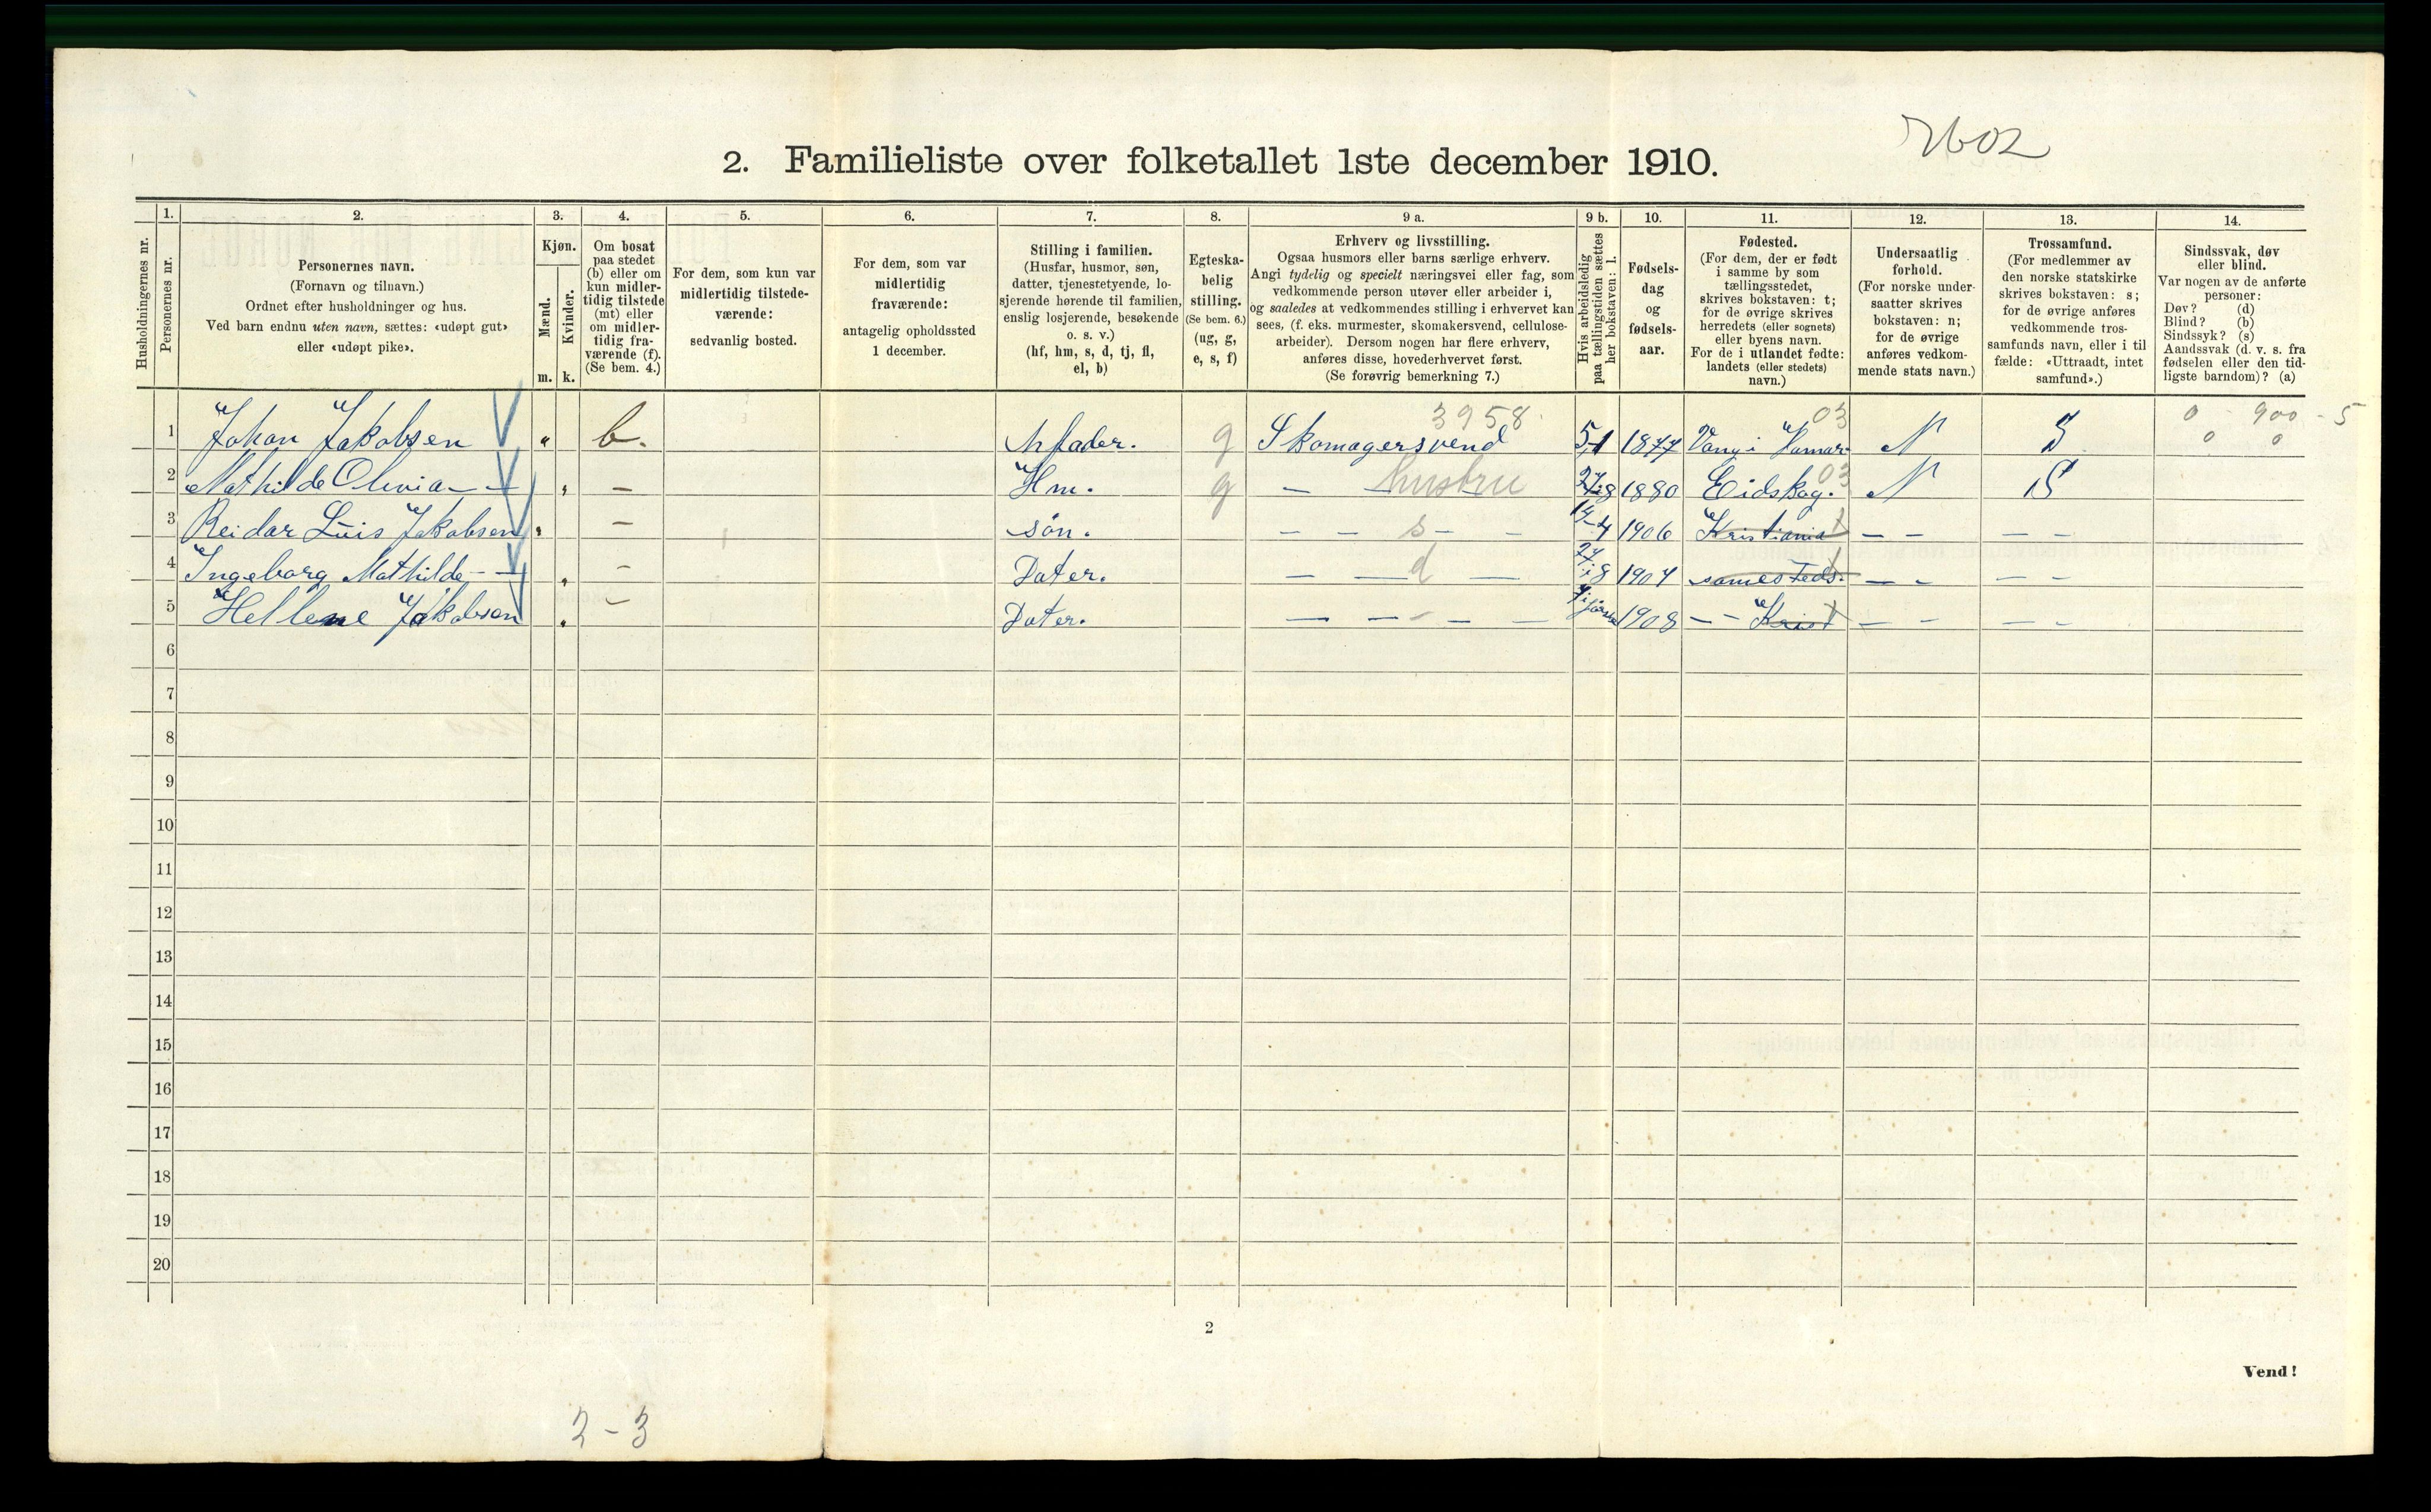 2602
2. Familieliste over folketallet 1ste december 1910.
1. 2. 3. 4. 5. 6. 7. 8. 9 a. 9 b. 10. 11. 12. 13. 14.
Husholdningernes nr.
Personernes nr.
Personernes navn.
(Fornavn og tilnavn.)
Ordnet efter husholdninger og hus.
Ved barn endnu uten navn, sættes: «udøpt gut»
eller «udøpt pike».
Kjøn.
Mænd.
Kvinder.
m. k.
Om bosat
paa stedet
(b) eller om
kun midler-
tidig tilstede
(mt) eller
om midler-
tidig fra-
værende (f).
(Se bem. 4.)
For dem, som kun var
midlertidig tilstede-
værende:
sedvanlig bosted.
For dem, som var
midlertidig
fraværende:
antagelig opholdssted
1 december.
Stilling i familien.
(Husfar, husmor, søn,
datter, tjenestetyende, lo-
sjerende hørende til familien,
enslig losjerende, besøkende
o. s. v.)
(hf, hm, s, d, tj, fl,
el, b)
Egteska-
belig
stilling.
(Se bem. 6.)
(ug, g,
e, s, f)
Erhverv og livsstilling.
Ogsaa husmors eller barns særlige erhverv.
Angi tydelig og specielt næringsvei eller fag, som
vedkommende person utøver eller arbeider i,
og saaledes at vedkommendes stilling i erhvervet kan
sees, (f. eks. murmester, skomakersvend, cellulose-
arbeider). Dersom nogen har flere erhverv,
anføres disse, hovederhvervet først.
(Se forøvrig bemerkning 7.)
Hvis arbeidsledig
paa tællingstiden sættes
her bokstaven: l.
Fødsels-
dag
og
fødsels-
aar.
Fødested.
(For dem, der er født
i samme by som
tællingsstedet,
skrives bokstaven: t;
for de øvrige skrives
herredets (eller sognets)
eller byens navn.
For de i utlandet fødte:
landets (eller stedets)
navn.)
Undersaatlig
forhold.
(For norske under-
saatter skrives
bokstaven: n;
for de øvrige
anføres vedkom-
mende stats navn.)
Trossamfund.
(For medlemmer av
den norske statskirke
skrives bokstaven: s;
for de øvrige anføres
vedkommende tros-
samfunds navn, eller i til
fælde: «Uttraadt, intet
samfund».)
Sindssvak, døv
eller blind.
Var nogen av de anførte
personer:
Døv? (d)
Blind? (b)
Sindssyk? (s)
Aandssvak (d. v. s. fra
fødselen eller den tid-
ligste barndom)? (a)
3958 03 0 900 - 5
1 Johan Jakobsen " b. fader. g Skomagersvend 5-1 1877 Vang i Hamar N S 0 0
2 Mathilde Olivia - - " - Hm. g - hustru 27-8 1880 Eidskog. 03 N S
3 Reidar Luis Jakobsen " - søn. - - s - - 14-4 1906 Kristiania t - - - -
4 Ingeborg Mathilde - - " - Dater. - - d - 27-8 1907 sames Teds. t - - - -
5 Hellene Jakobsen " - Dater. - - - - - 1908 - - Krist t - - - -
6
7
8
9
10
11
12
13
14
15
16
17
18
19
20
2
Vend!
2-3